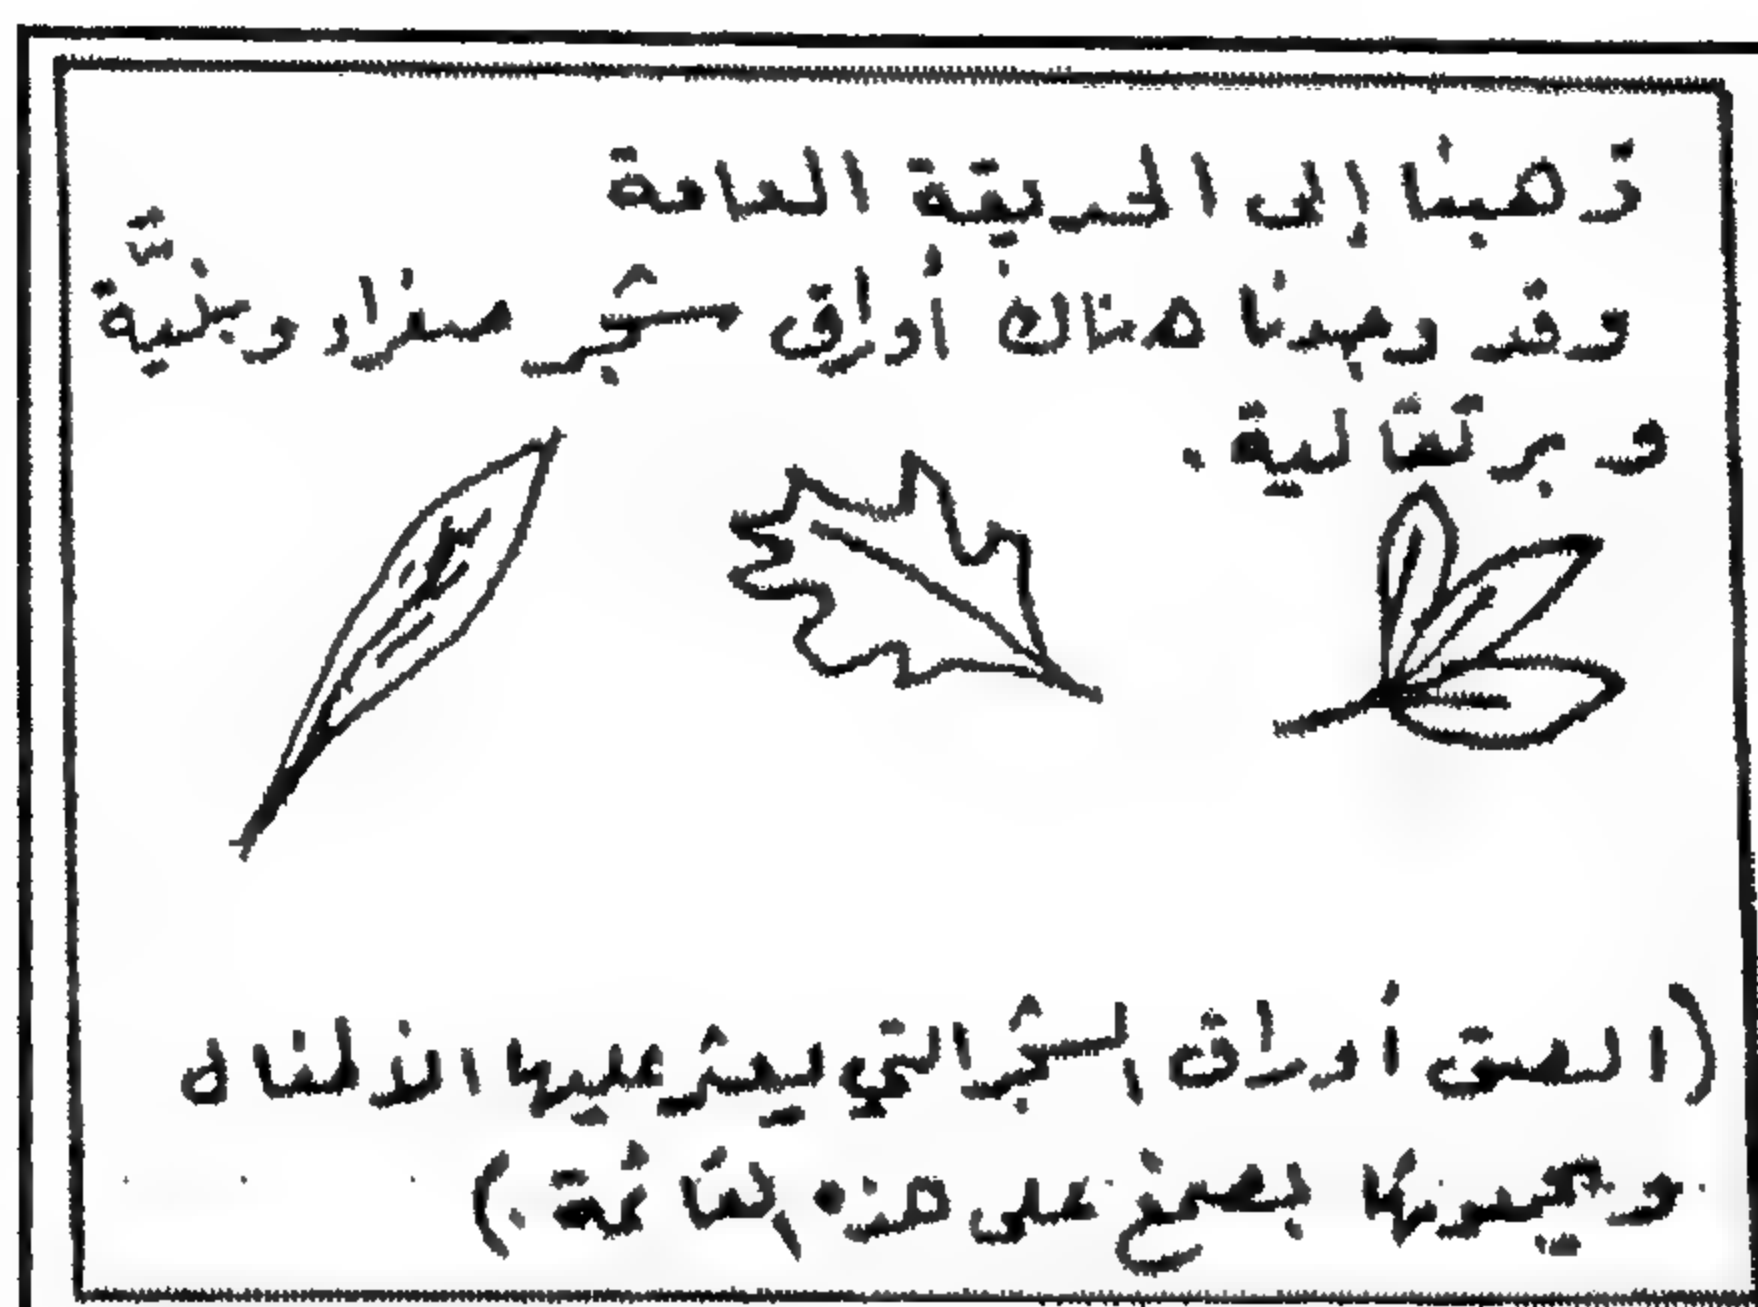 ذهبنا إلى الحديقة العامة
وقد وجدنا هناك أوراق شجر صفراء وبنيّة
وبرتقالية.
(الصق أوراق الشجر التي يعثر عليها الأطفال
ويحبونها بصمغ على هذه القائمة.)